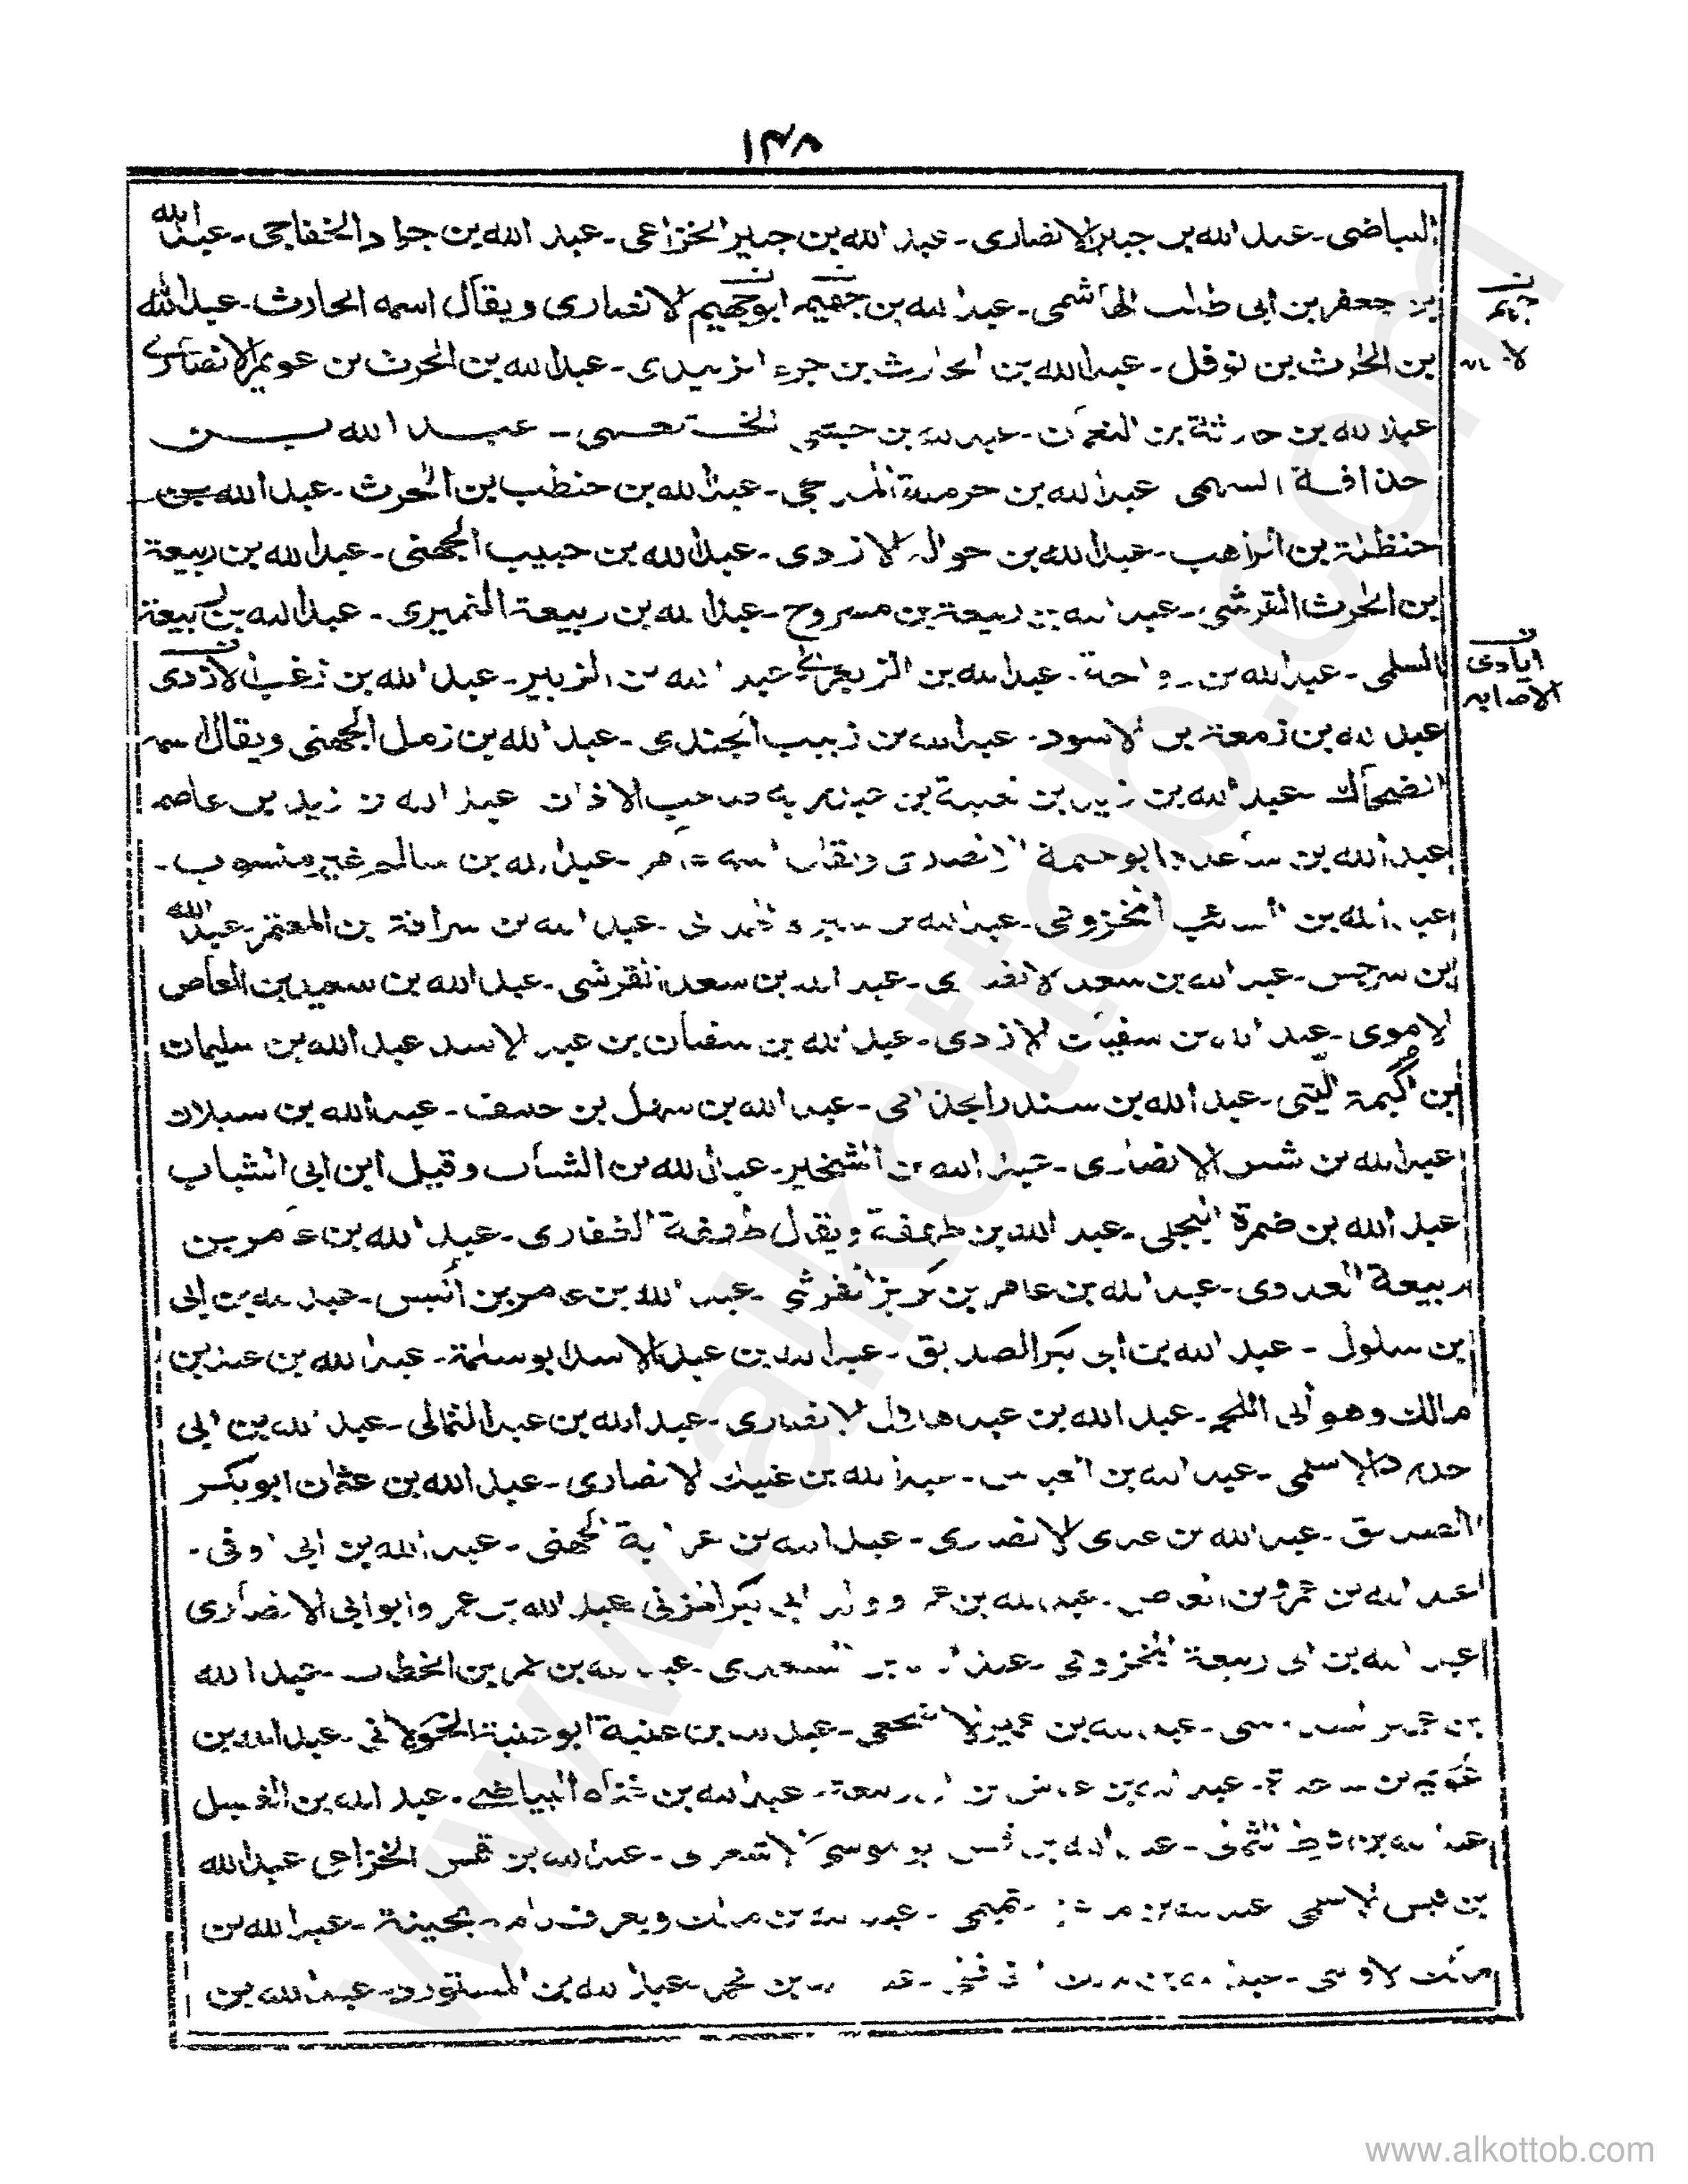 ۱۴۸
البياضى - عبد الله بن جبير الانصارى - عبد الله بن جبير الخزاعى - عبد الله بن جراد الخفاجى - عبد الله
بن جعفر بن ابى طالب الهاشمى - عبد الله بن جهيم ابو جهيم الانصارى ويقال اسمه الحارث - عبد الله
جهيم
بن الحرث بن نوفل - عبد الله بن الحارث بن جزء الزبيدى - عبد الله بن الحرث بن عويمر الانصارى
عبد الله بن حارثة بن النعمان - عبد الله بن حبشى الخثعمى - عبد الله بن
حذافة السهمى عبد الله بن حرملة المدلجى - عبد الله بن حنطب بن الحرث - عبد الله بن
حنظلة بن الراهب - عبد الله بن حواله الازدى - عبد الله بن حبيب الجهنى - عبد الله بن ربيعة
بن الحرث القرشى - عبد الله بن ربيعة بن مسروح - عبد الله بن ربيعة النميرى - عبد الله بن ربيعة
السلمى - عبد الله بن رواحة - عبد الله بن الزبعرى عبد الله بن الزبير - عبد الله بن زغب الازدى
ايادى
الاصابه
عبد الله بن زمعة بن الاسود - عبد الله بن زبيب الجندى - عبد الله بن زمل الجهنى ويقال اسمه
الضحاك عبد الله بن زيد بن ثعلبة بن عبد ربه صاحب الاذان عبد الله بن زيد بن عاصم
عبد الله بن ساعدة ابو حثمة الانصارى ويقال اسمه عامر - عبد الله بن سالم غير منسوب -
عبد الله بن السائب المخزومى - عبد الله بن سبرة الهمدانى - عبد الله بن سراقة بن المعتمر - عبد الله
بن سرجس - عبد الله بن سعد الانصارى - عبد الله بن سعد القرشى - عبد الله بن سعيد بن العاص
الاموى - عبد الله بن سفيان الازدى - عبد الله بن سفيان بن عبد الاسد عبد الله بن سليمان
بن اكيمة الليثى - عبد الله بن سندر الجذامى - عبد الله بن سهل بن حنيف - عبد الله بن سيلان
عبد الله بن شمس الانصارى - عبد الله بن الشخير - عبد الله بن الشياب وقيل ابن ابى الشياب
عبد الله بن ضمرة البجلى - عبد الله بن طهفة ويقال طخفة الغفارى - عبد الله بن عامر بن
ربيعة العدوى - عبد الله بن عامر بن كريز القرشى - عبد الله بن عامر بن انيس - عبد الله بن ابى
بن سلول - عبد الله بن ابى بكر الصديق - عبد الله بن عبد الاسد ابو سلمة - عبد الله بن عبد بن
مالك وهو آبى اللحم - عبد الله بن عبد هلال الانصارى - عبد الله بن عبد الثمالى - عبد الله بن ابى
حدرد الاسلمى - عبد الله بن العباس - عبد الله بن عتيك الانصارى - عبد الله بن عثمان ابو بكر
الصديق - عبد الله بن عدى الانصارى - عبد الله بن عرابة الجهنى - عبد الله بن ابى اوفى -
عبد الله بن عمرو بن العاص - عبد الله بن عمرو والد ابى بكر المزنى عبد الله بن عمرو ابو ابى الانصارى
عبد الله بن ابى ربيعة المخزومى - عبد الله بن السعدى - عبد الله بن عمر بن الخطاب - عبد الله
بن عمير السدوسى - عبد الله بن عمير الاشجعى - عبد الله بن عنبة ابو عنبة الخولانى - عبد الله بن
عويم بن ساعدة - عبد الله بن عياش بن ابى ربيعة - عبد الله بن غنام البياضى - عبد الله بن الغسيل
عبد الله بن قرط الثمالى - عبد الله بن قيس ابو موسى الاشعرى - عبد الله بن قيس الخزاعى عبد الله
بن قيس الاسلمى عبد الله بن تميمى - عبد الله بن مالك ويعرف بامه بحينة - عبد الله بن
مالك الاوسى - عبد الله بن مالك - عبد الله بن محمد - عبد الله بن المستورد - عبد الله بن
www.alkottob.com